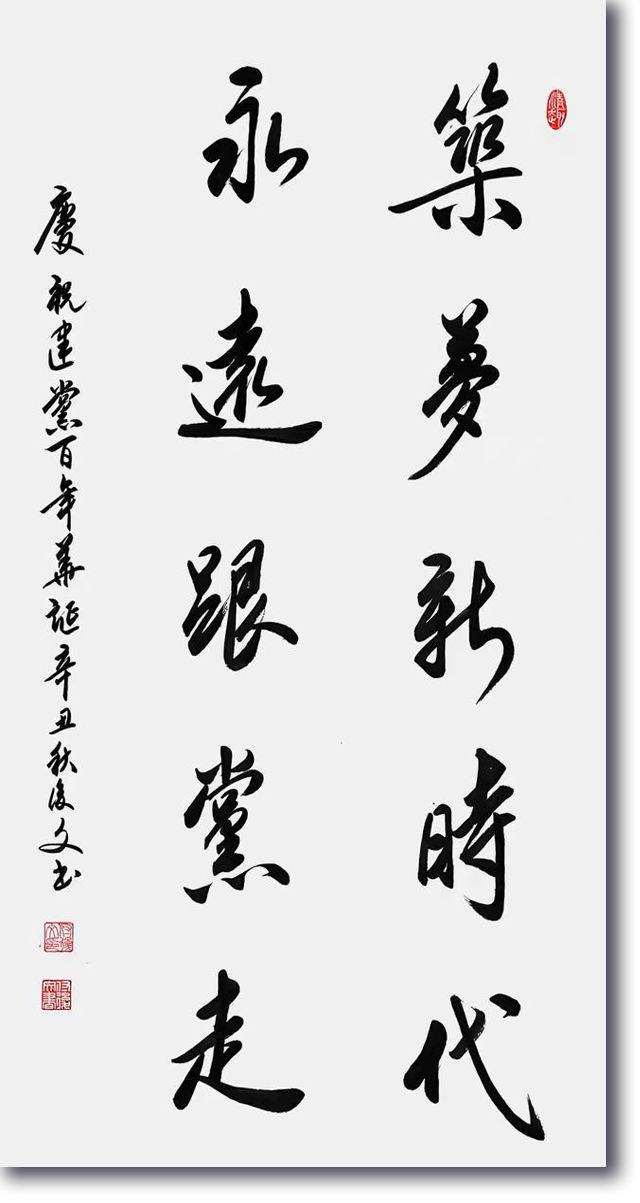 築夢新時代
永遠跟黨走
慶祝建黨百年華誕辛丑秋俊文書